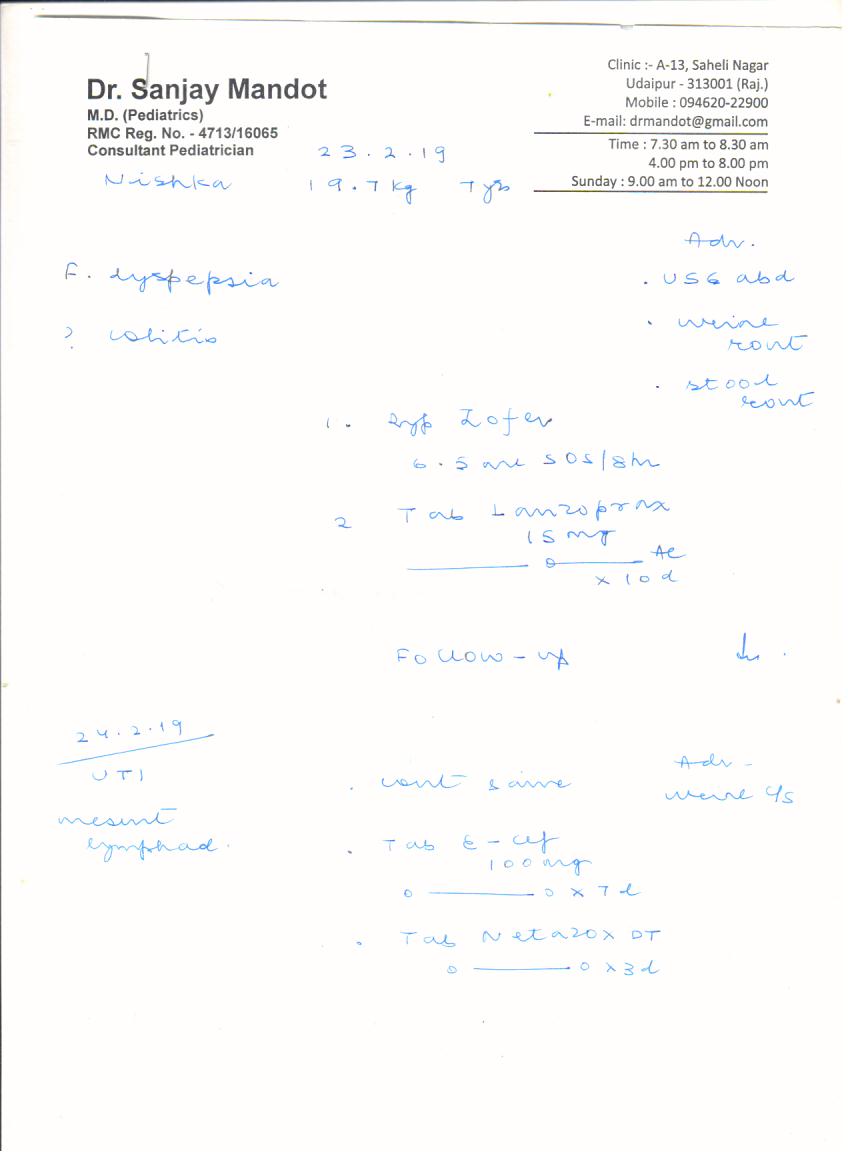 Dr. Sanjay Mandot
M.D. (Pediatrics)
RMC Reg. No. - 4713/16065
Consultant Pediatrician
Clinic :- A-13, Saheli Nagar
Udaipur - 313001 (Raj.)
Mobile : 094620-22900
E-mail: drmandot@gmail.com
Time : 7.30 am to 8.30 am
4.00 pm to 8.00 pm
Sunday : 9.00 am to 12.00 Noon
23.2.19
Nishka 19.7 kg 7 yrs
F. dyspepsia
? colitis
Adv.
. USG abd
. urine
rout
. stool
rout
1. Syp Zofer
6.5 ml SOS/8hr
2 Tab Lanzoprax
15 mg
—— 0 —— AC
x 10 d
Follow-up
24.2.19
UTI
mesent
lymphad.
. cont same
Adv -
urine c/s
. Tab E-cef
100 mg
0 —— 0 x 7 d
. Tab Netazox DT
0 —— 0 x 3 d